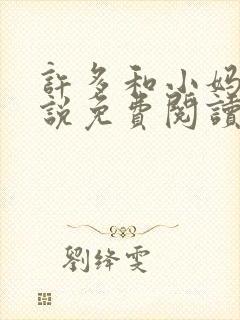 許多和小妈
說免費閱讀
劉绛雯